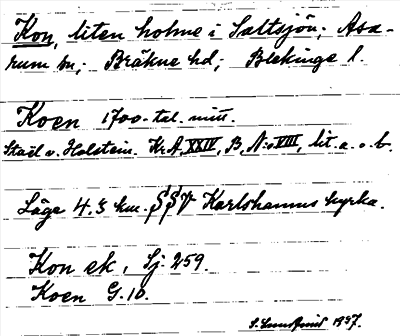 Kon, liten holme i Saltsjön; Asa-
rum sn; Bräkne hd; Blekinge l.
Koen 1700-tal. mitt.
Staël v. Holstein. Kr. A. XXIV, B, No VIII, lit. a. o. b.
Läge 4.3 km. SSV Karlshamns kyrka.
Kon ek, Sj. 259.
Koen G. 10.
1937.